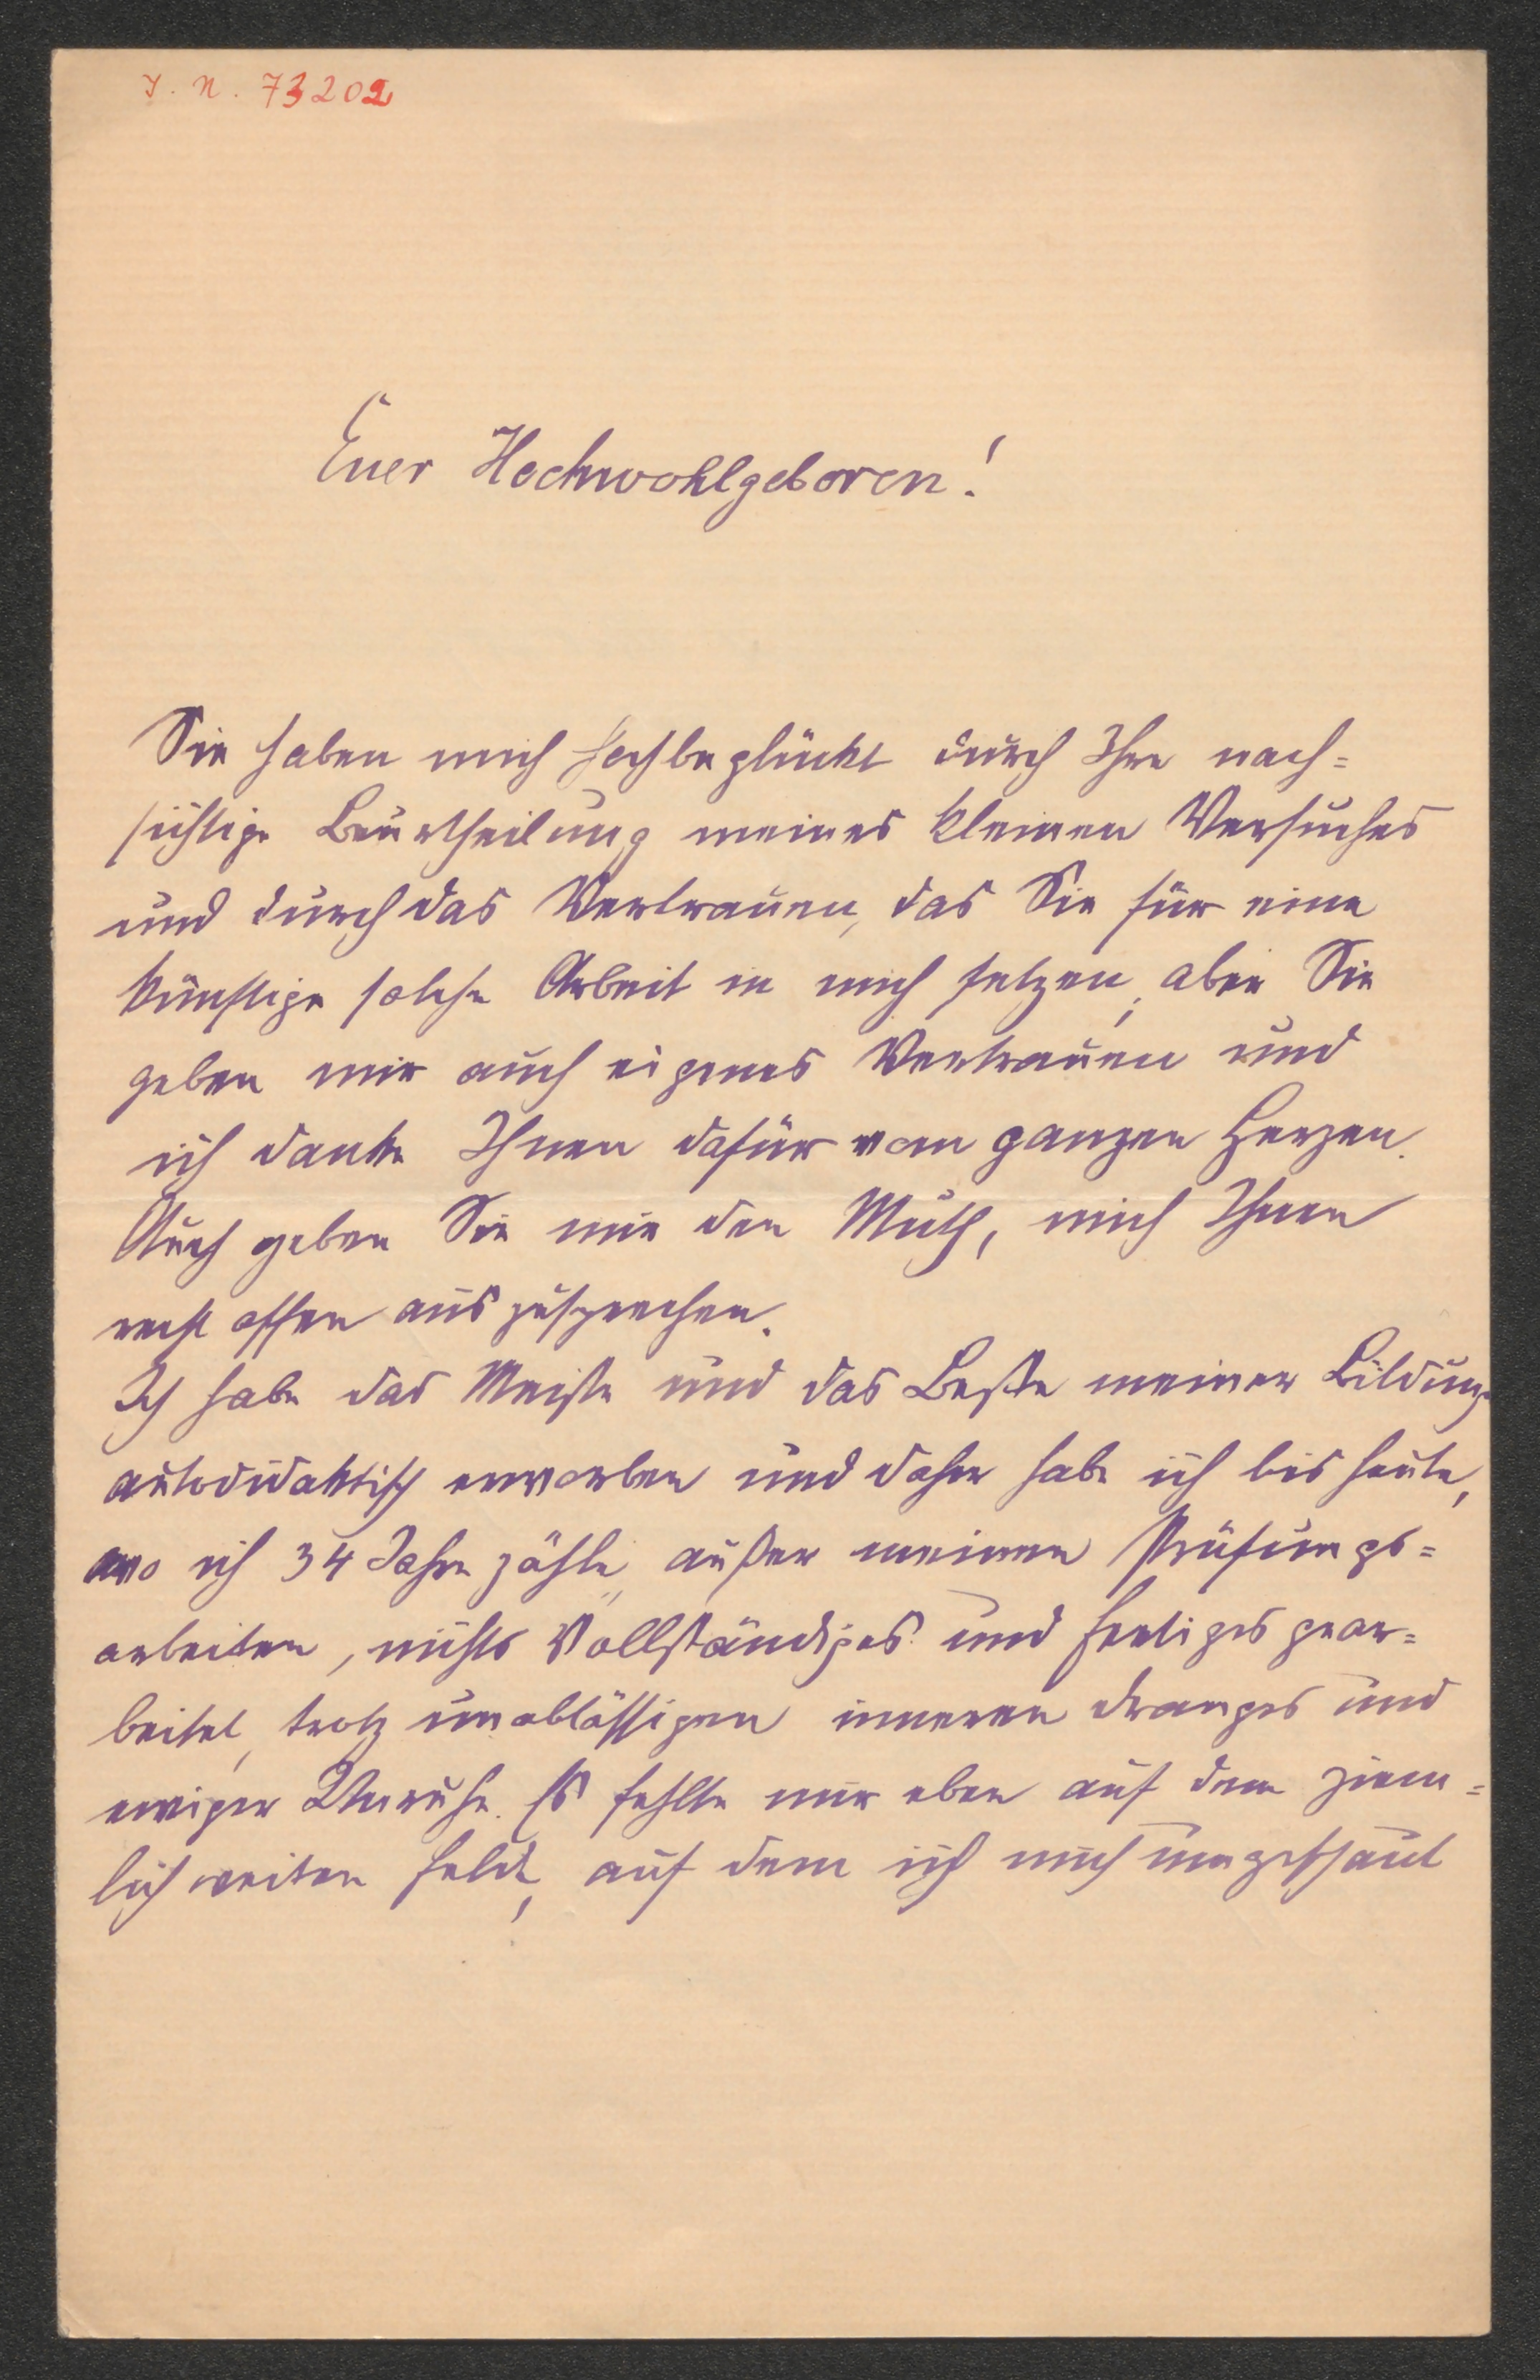 I. N. 73202
Euer Hochwohlgeboren!
Sie haben mich hochbeglückt durch Ihre nach=
sichtige Beurtheilung meines kleinen Versuches
und durch das Vertrauen, das Sie für eine
künftige solche Arbeit in mich setzen, aber Sie
geben mir auch eigenes Vertrauen und
ich danke Ihnen dafür vom ganzen Herzen.
Auch geben Sie mir den Muth, mich Ihnen
recht offen auszusprechen.
Ich habe das Meiste und das Beste meiner Bildung
autodidaktisch erworben und daher habe ich bis heute,
wo ich 34 Jahre zähle, außer meinen Prüfungs=
arbeiten, nichts Vollständiges und Fertiges gear=
beitet, trotz unablässigen inneren Dranges und
ewiger Unruhe. Es fehlte mir eben auf dem ziem=
lich weiten Feld, auf dem ich mich umgeschaut